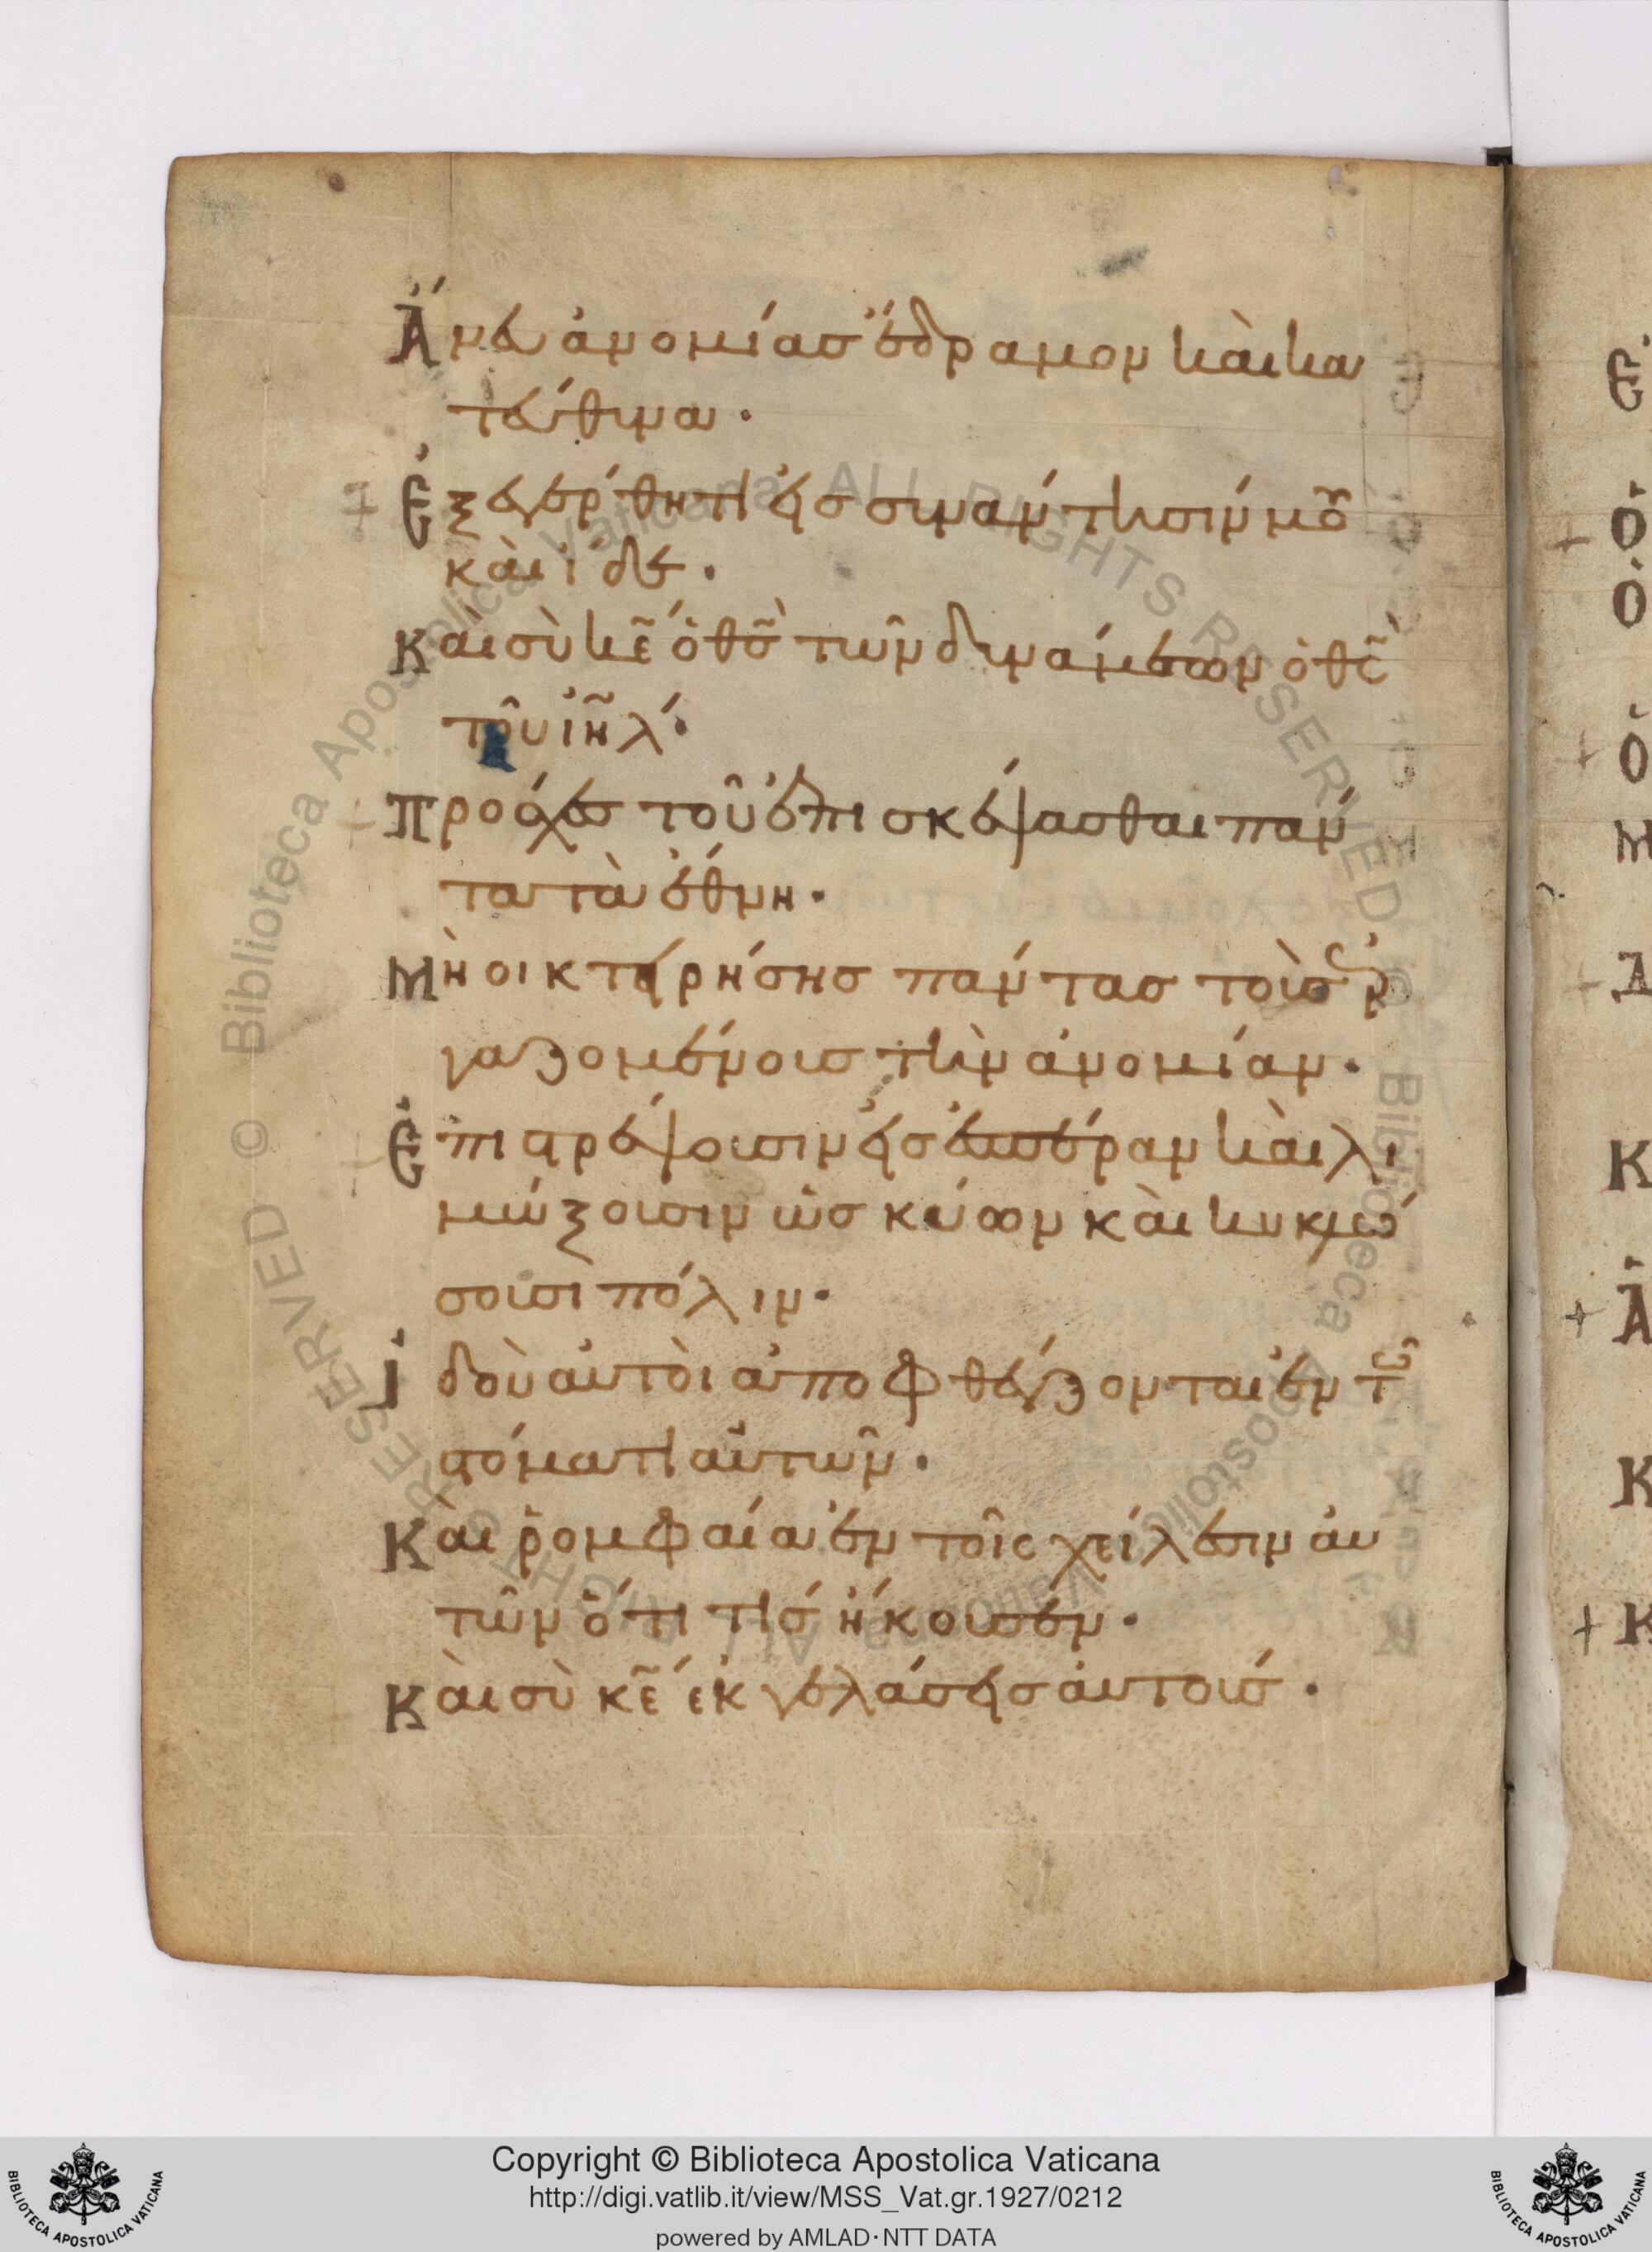 Ἄνευ ἀνομίασ ἔδραμον καὶ κα
τεύθυνα·
Ἐξεγέρθητι εἰσ συνάντησίν μου
καὶ ἴδε·
Και σὺ κ̅ε̅ ὁ θ̅σ̅ τῶν δυνάμεων ὁ θ̅ς̅
τοῦ ι̅η̅λ̅·
Πρόσχεσ τοῦ ἐπισκέψασθαι πάν
τα τὰ ἔθνη·
Μὴ οικτειρήσησ πάντασ τοὺσ ἐρ
γαζομένουσ τὴν ἀνομίαν·
Ἐπιστρέψουσιν εἰσ ἑσπέραν καὶ λι
μώξουσιν ὡσ κύων καὶ κυκλώ
σουσι πόλιν·
Ἰδοὺ αὐτοὶ ἀποφθέγξονται ἐν τῶ
στόματι αὐτῶν·
Καὶ ῥομφαία ἐν τοῖς χείλεσιν αὐ
τῶν ὅτι τίσ ἤκουσεν·
Καὶ σὺ κ̅ε̅ ἐκγελάσεισ αὐτούσ·
Ἐ
Ὁ
Ὁ
Ὁ
Μ
Δ
Κ
Ἀ
Κ
Κ
Copyright © Biblioteca Apostolica Vaticana
http://digi.vatlib.it/view/MSS_Vat.gr.1927/0212
powered by AMLAD·NTT DATA
BIBLIOTECA APOSTOLICA VATICANA
BIBLIOTECA APOSTOLICA VATICANA